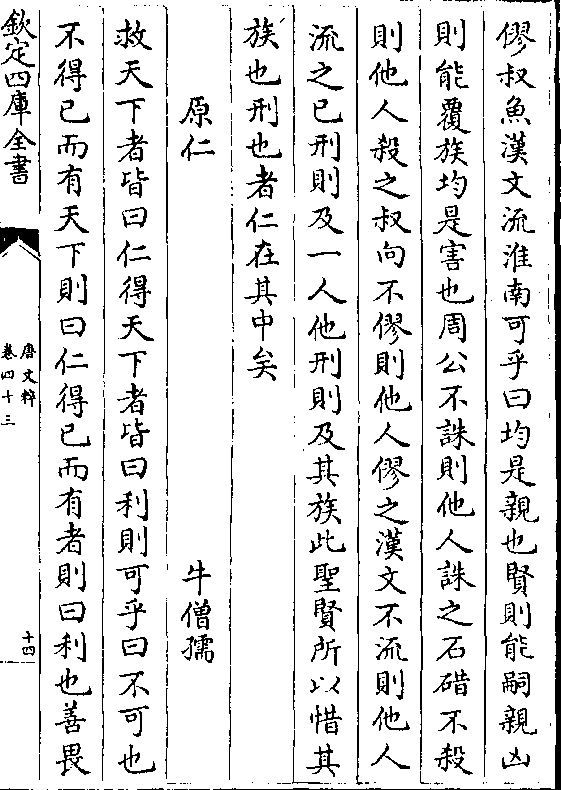 僇叔魚漢文流淮南可乎曰均是親也賢則能嗣親凶
則能覆族均是害也周公不誅則他人誅之石碏不殺
則他人殺之叔向不僇則他人僇之漢文不流則他人
流之已刑則及一人他刑則及其族此聖賢所以惜其
族也刑也者仁在其中矣
原仁 牛僧孺
救天下者皆曰仁得天下者皆曰利則可乎曰不可也
不得已而有天下則曰仁得已而有者則曰利也善畏
欽定四庫全書
唐文粹
卷四十三
十四